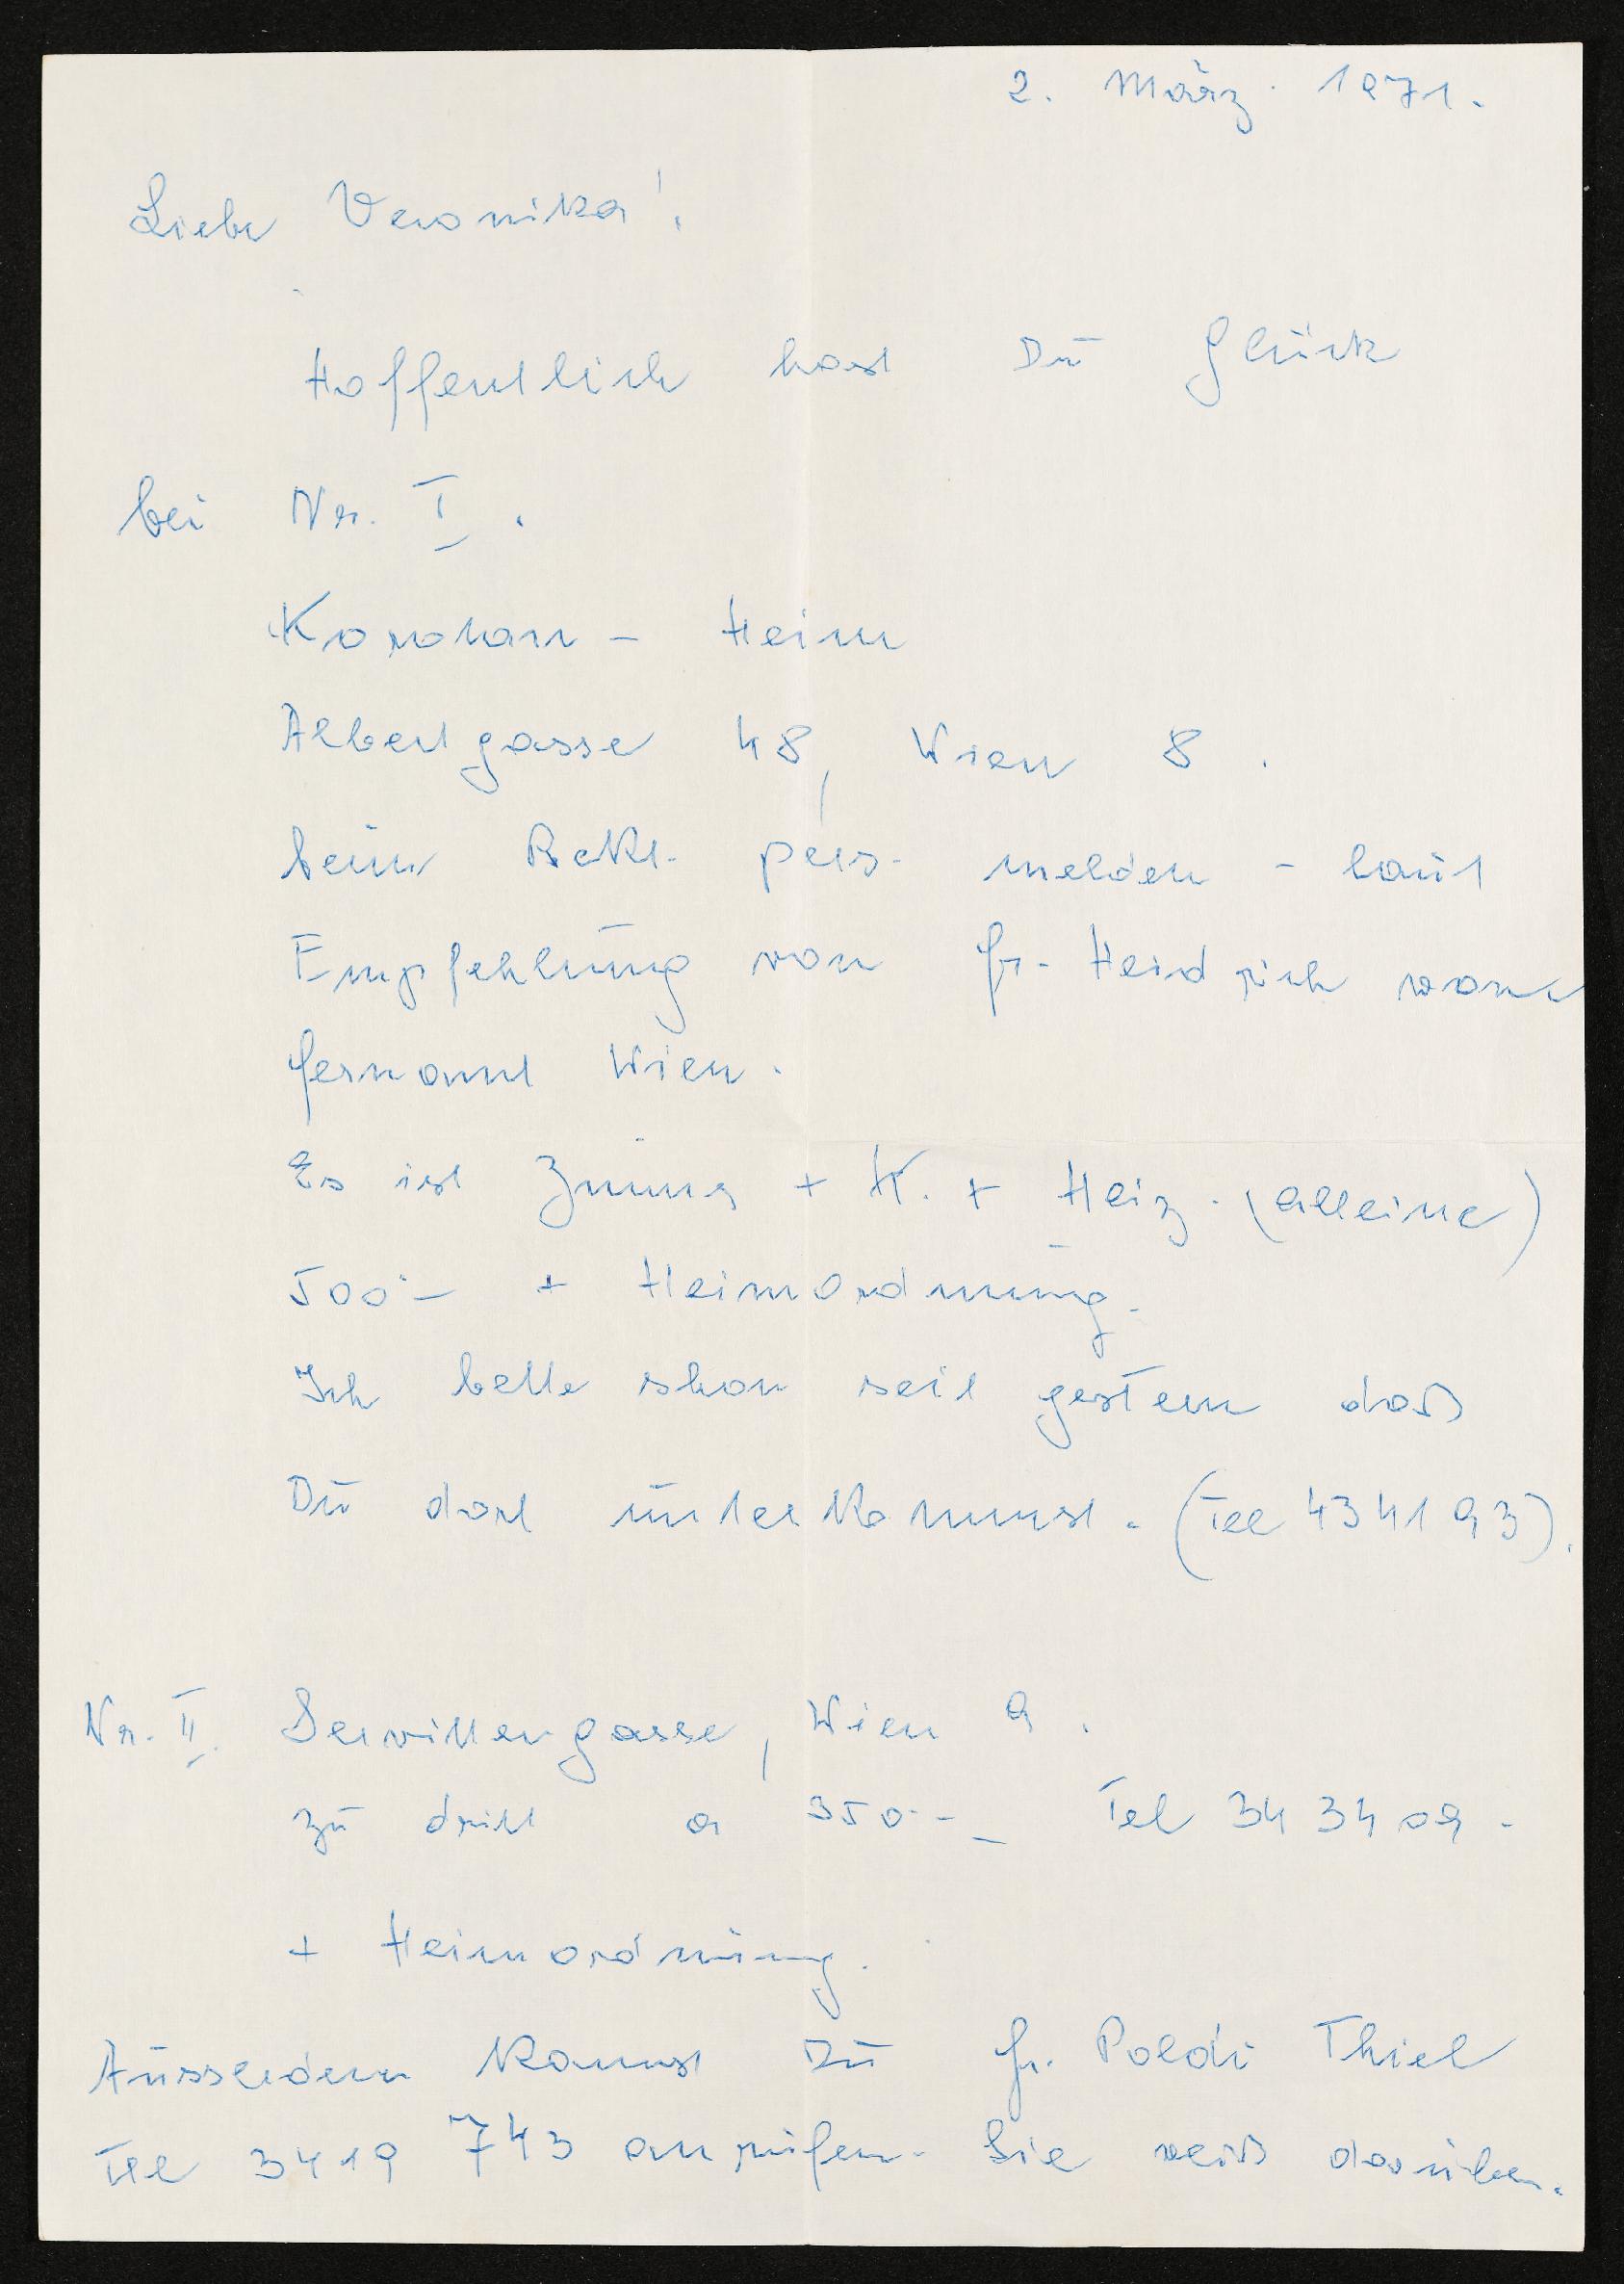 2. März. 1971.
Liebe Veronika!
Hoffentlich hast Du Glück
bei Nr. I.
Korotan - Heim
Albertgasse 48, Wien 8.
beim Rekt. pers. melden - laut
Empfehlung von Fr. Heidrich
Wien.
Es ist Zimmer + K. + Heiz. (alleine)
500.- + Heimordnung.
Ich bette schon seit gestern daß
Du dort unterkommst. (Tel 434193).
Nr. II. Servittengasse, Wien 9.
zu dritt a 350.-- Tel 34 34 09.
+ Heimordnung.
Ausserdem kannst Du Fr. Poldi Thiel
Tel 3419 743 anrufen. Sie weiß darüber.